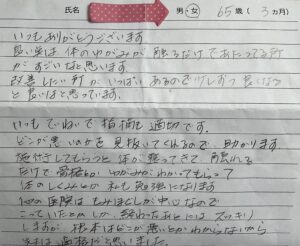 氏名 男・女 65歳(3ヵ月)
いつもありがとうございます
良い所は 体のゆがみが 触るだけであたってる所
がすごいなと思います
改善したい所が いっぱい あるので 少しずつ 良くなる
と 良いなと思っています。
いつも ていねいで 指摘も 適切です。
どこが 悪いのかを 見抜いてくれるので 助かります
施行してもらうと 体が 整ってきて 触れる
だけで 骨格の ゆがみが わかってもらって
体の しくみとか 私も 勉強になります
他の医院は もみほぐしが 中心なので
こっていたか 終わったあとには スッキリ
しますが 根本はどこが 悪いとか わからないから
思いました。